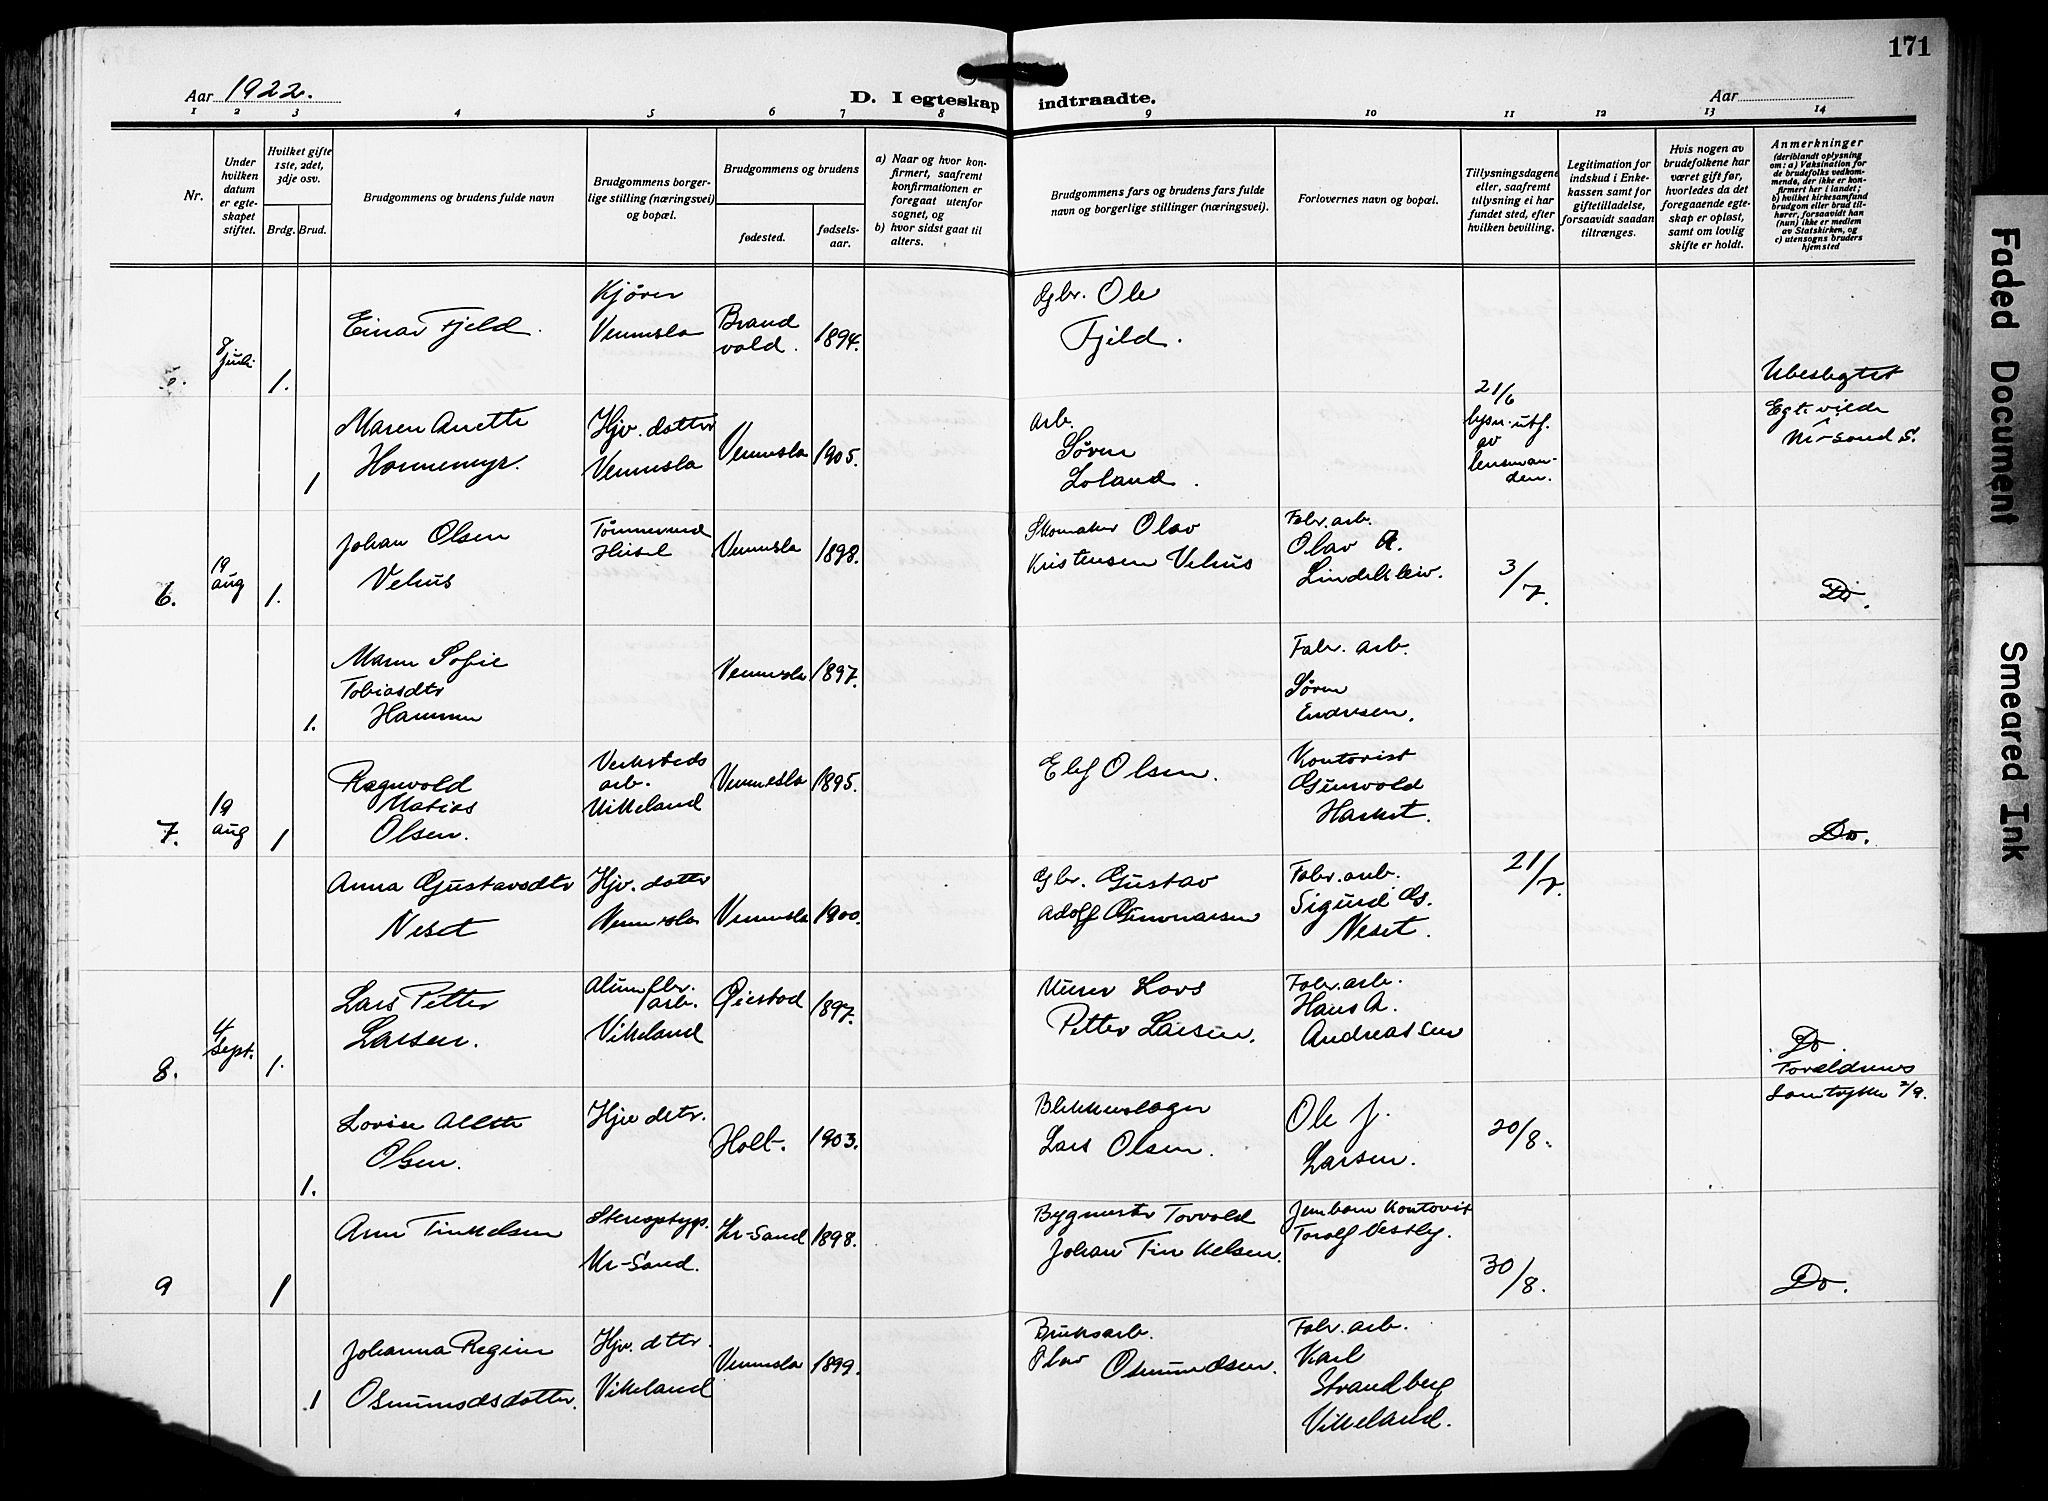 171
Aar 1922.
D. I egteskap indtraadte.
Aar
1 2 3 4 5 6 7 8 9 10 11 12 13 14
Nr.
Under hvilken datum er egteskapet stiftet.
Hvilket gifte 1ste, 2det, 3dje osv.
Brdg. Brud.
Brudgommens og brudens fulde navn
Brudgommens borgerlige stilling (næringsvei) og bopæl.
Brudgommens og brudens
fødested.
fødselsaar.
a) Naar og hvor konfirmert, saafremt konfirmationen er foregaat utenfor sognet, og
b) hvor sidst gaat til alters.
Brudgommens fars og brudens fars fulde navn og borgerlige stillinger (næringsvei).
Forlovernes navn og bopæl.
Tillysningsdagene eller, saafremt tillysning ei har fundet sted, efter hvilken bevilling.
Legitimation for indskud i Enkekassen samt for giftetilladelse, forsaavidt saadan tiltrænges.
Hvis nogen av brudefolkene har været gift før, hvorledes da det foregaaende egteskap er opløst, samt om lovlig skifte er holdt.
Anmerkninger (deriblandt oplysning om: a) Vaksination for de brudefolks vedkommende, der ikke er konfirmert her i landet; b) hvilket kirkesamfund brudgom eller brud tilhører, forsaavidt han (hun) ikke er medlem av Statskirken, og c) utensogns bruders hjemsted
5. 8 juli 1. Einar Fjeld. Kjører Vennesla Brandvold. 1894. Gbr. Ole Fjeld. Ubeslegtet
1 Maren Anette Honnemyr. Hjv. datter Vennesla Vennesla 1905. arb. Søren Loland. 21/6 lysn. utf. av lensmanden. Egt. vilde Kr-sand S.
6. 19 aug 1. Johan Olsen Vehus Vennesla 1898. Skomaker Olav Kristensen Vehus Fabr. arb. Olav A. Lindekleiv. 3/7. Do.
1. Maren Sofie Tobiasdtr Hammen Vennesla 1897. Fabr. arb. Søren Endresen.
7. 19 aug 1 Ragnvold Matias Olsen. Verksteds arb. Vikeland Vennesla 1895. Elef Olsen. Kontorist Gunvold Harket. Do.
Anna Gustavsdtr Neset Hjv. datter Vennesla Vennesla 1900. Gbr. Gustav Adolf Gunnarsen Fabr. arb. Sigurd Gs. Neset. 21/7.
8. 4 sept. 1. Lars Petter Larsen. Alum. fbr. arb. Vikeland Øiestad 1897. Murer Lars Petter Larsen. Fabr. arb. Hans A. Andreassen Do. Foreldrenes Samtykke 2/9.
1. Lovise Alette Olsen. Hjv detr. Holt. 1903. Blikkenslager Lars Olsen. Ole J. Larsen. 20/8.
9 1 Arne Tinkelsen Stereotyp. Kr-Sand. Kr-Sand 1898. Bygmester Torvold Johan Tinkelsen. Jernbane Kontorist Torolf Vestby. 30/8. Do.
1 Johanna Regine Osmundsdatter. Hjv. dttr. Vikeland Vennesla 1899. Bruksarb. Olav Osmundsen. Fabr. arb. Karl Strandberg Vikeland.
Faded Document
Smeared Ink